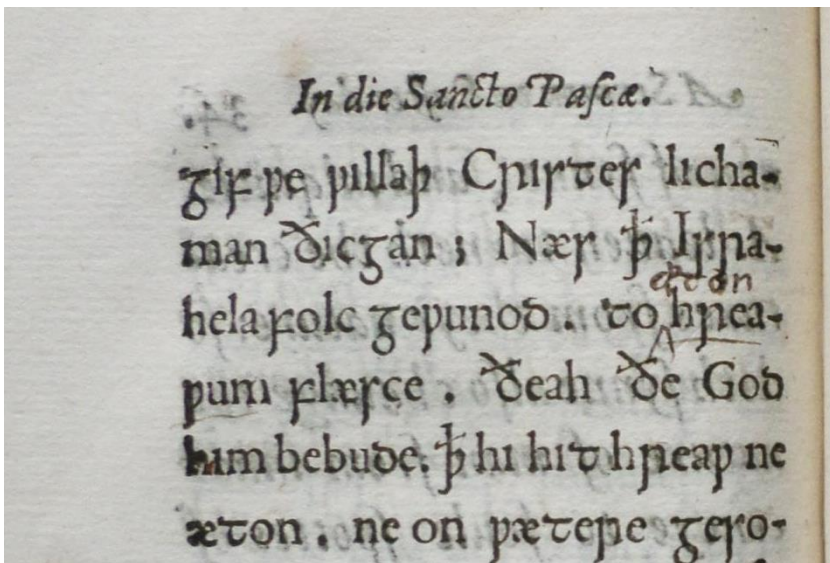 In die Sancto Paſcæ.
gif ƿe ƿillaþ Cristes licha-
man ðicgan; Næs ꝥ Isra-
hela folc geƿunod. to hrea-
ƿum flæsce. ðeah ðe God
him bebude. ꝥ hi hit hreaƿ ne
æton. ne on ƿætere geso-